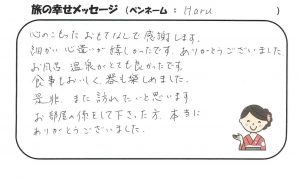 旅の幸せメッセージ（ペンネーム：Haru）
心のこもった おもてなしで 感謝します。
細かい心遣いが嬉しかったです。ありがとうございました。
お風呂、温泉がとても良かったです。
食事もおいしく、器も楽しめました。
是非、また訪れたいと思います。
お部屋の係をして下さった方、本当に
ありがとうございました。